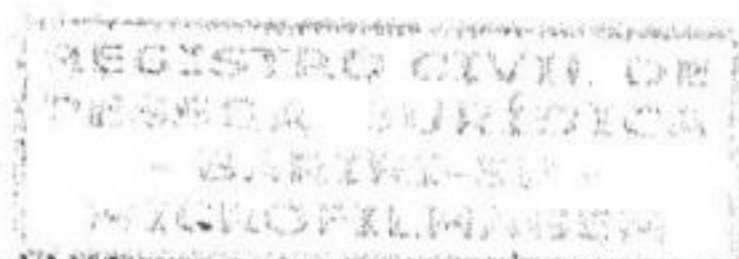 REGISTRO CIVIL DE
PESSOA JURÍDICA
- BARIRI-SP -
MICROFILMAGEM